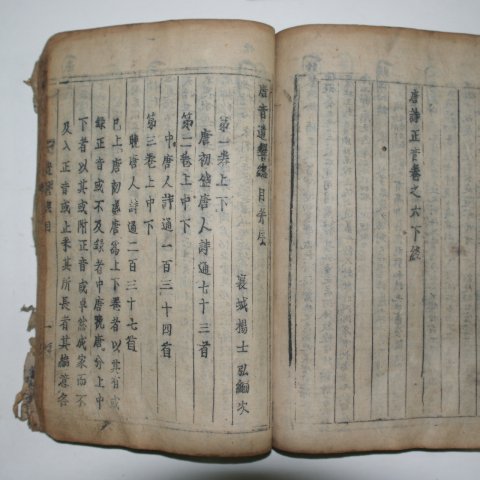 唐詩正音卷之六下終
唐音遺響總目并序
襄城楊士弘編次
第一卷上下
唐初盛唐人詩通七十三首
第二卷上中下
中唐人詩通一百三十四首
第三卷上中下
晚唐人詩通二百三十七首
已上唐初盛唐爲上下卷者以其有或
錄正音或不及錄者中唐晚唐分上中
下者以其或附正音或卓然成家而不
及入正音或止采其所長者其編著各